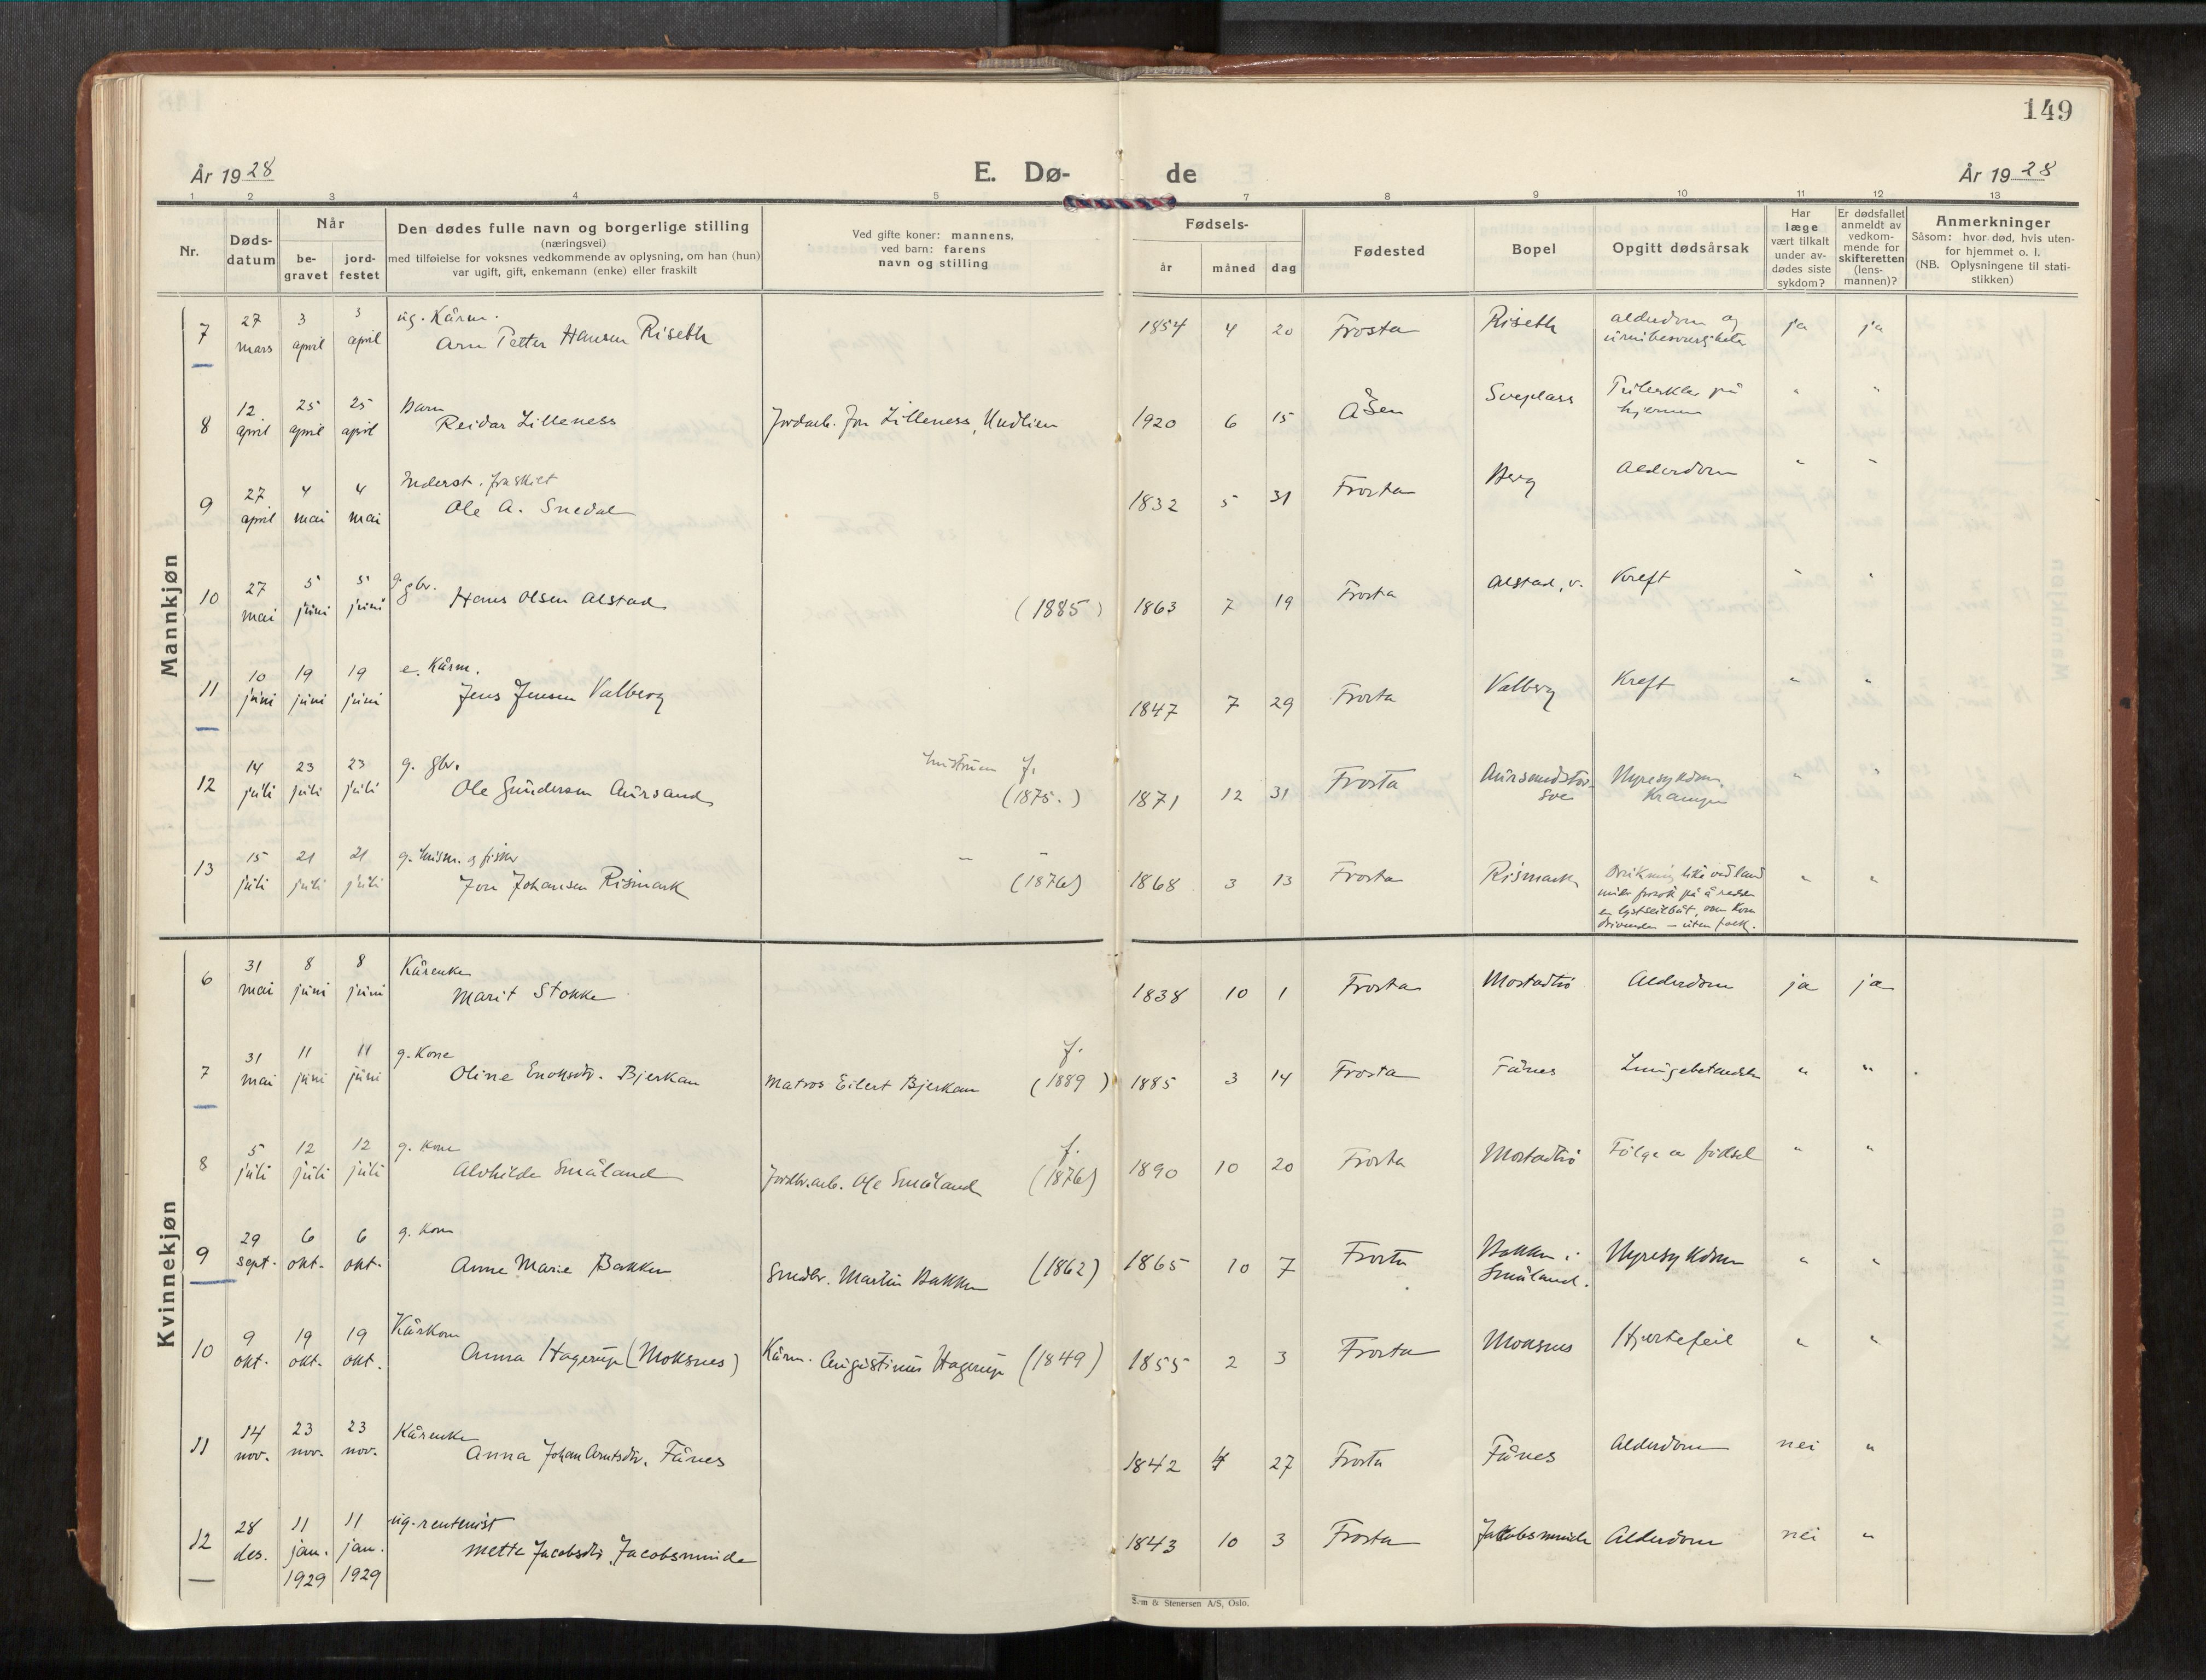 149
År 1928 E. Dø- de År 1928
1 2 3 4 5 7 8 9 10 11 12 13
Nr.
Døds-
datum
Når
be-
gravet
jord-
festet
Den dødes fulle navn og borgerlige stilling
(næringsvei)
med tilføielse for voksnes vedkommende av oplysning, om han (hun)
var ugift, gift, enkemann (enke) eller fraskilt
Ved gifte koner: mannens,
ved barn: farens
navn og stilling
Fødsels-
år måned dag
Fødested
Bopel
Opgitt dødsårsak
Har
læge
vært tilkalt
under av-
dødes siste
sykdom?
Er dødsfallet
anmeldt av
vedkom-
mende for
skifteretten
(lens-
mannen)?
Anmerkninger
Såsom: hvor død, hvis uten-
for hjemmet o. l.
(NB. Oplysningene til stati-
stikken)
Mannkjøn
7 27 mars 3 april 3 april ug. Kårm.
Arn Petter Hansen Riseth 1854 4 20 Frosta Riseth alderdom og
urinbesværligheter ja ja
8 12 april 25 april 25 april Barn
Reidar Lilleness Jordarb. Jon Lilleness, Undlien 1920 6 15 Åsen Sveplass Tuberkler på
hjernen " "
9 27 april 4 mai 4 mai Inderst. fraskilt
Ole A. Snedal 1832 5 31 Frosta Berg Alderdom " "
10 27 mai 5 juni 5 juni g. gbr.
Hans Olsen Alstad (1885) 1863 7 19 Frosta Alstad, v. Kreft " "
11 10 juni 19 juni 19 juni e. Kårm.
Jens Jensen Valberg 1847 7 29 Frosta Valberg Kreft " "
12 14 juli 23 juli 23 juli g. gbr.
Ole Gundersen Aursand hustruen f.
(1875.) 1871 12 31 Frosta Nyresykdom
Krampe " "
13 15 juli 21 juli 21 juli g. husm. og fisker
Jon Johansen Rismark – – (1876) 1868 3 13 Frosta Rismark Drukning like ved land
under forsök på å redde
en lystseilbåt, som kom
drivende – uten folk. " "
Kvinnekjøn
6 31 mai 8 juni 8 juni Kårenke
Marit Stokke 1838 10 1 Frosta Mostadtrö Alderdom ja ja
7 31 mai 11 juni 11 juni g. Kone
Oline Enoksdtr. Bjerkan Matros Eilert Bjerkan f.
(1889) 1885 3 14 Frosta Fånes Lungebetendelse " "
8 5 juli 12 juli 12 juli g. Kone
Alvhilde Småland Jordbr.arb. Ole Småland f.
(1876) 1890 10 20 Frosta Mostadtrö Fölge av födsel " "
9 29 sept. 6 okt. 6 okt. g. Kone
Anne Marie Bakken Småbr. Martin Bakken (1862) 1865 10 7 Frosta Bakken i
Småland. Nyresykdom " "
10 9 okt. 19 okt. 19 okt. Kårkone
Anna Hagerup (Moksnes) Kårm. Augustinus Hagerup (1849) 1855 2 3 Frosta Moksnes Hjertefeil " "
11 14 nov. 23 nov. 23 nov. Kårenke
Anna Johan Arntsdtr. Fånes 1842 4 27 Frosta Fånes Alderdom nei "
12 28 des. 11 jan. 1929 11 jan. 1929 ug. rentenist
Mette Jacobsdtr. Jacobsminde 1843 10 3 Frosta Jakobsminde Alderdom nei "
Sem & Stenersen A/S, Oslo.